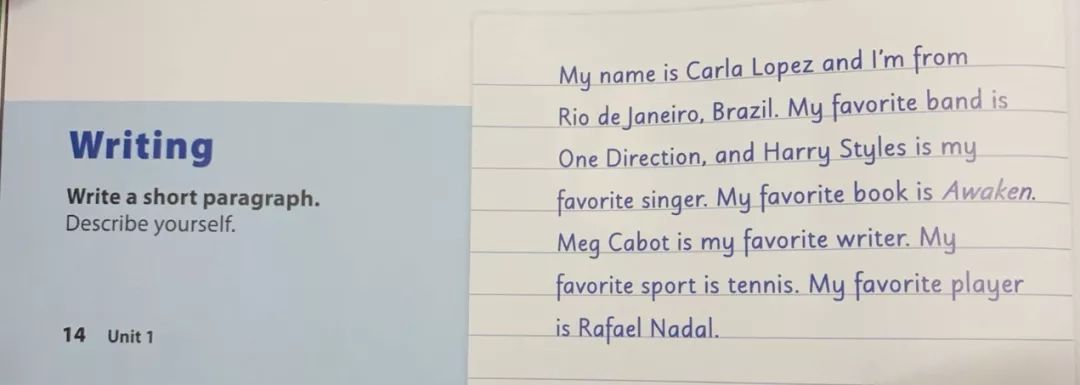 Writing
Write a short paragraph.
Describe yourself.
14 Unit 1
My name is Carla Lopez and I'm from
Rio de Janeiro, Brazil. My favorite band is
One Direction, and Harry Styles is my
favorite singer. My favorite book is Awaken.
Meg Cabot is my favorite writer. My
favorite sport is tennis. My favorite player
is Rafael Nadal.